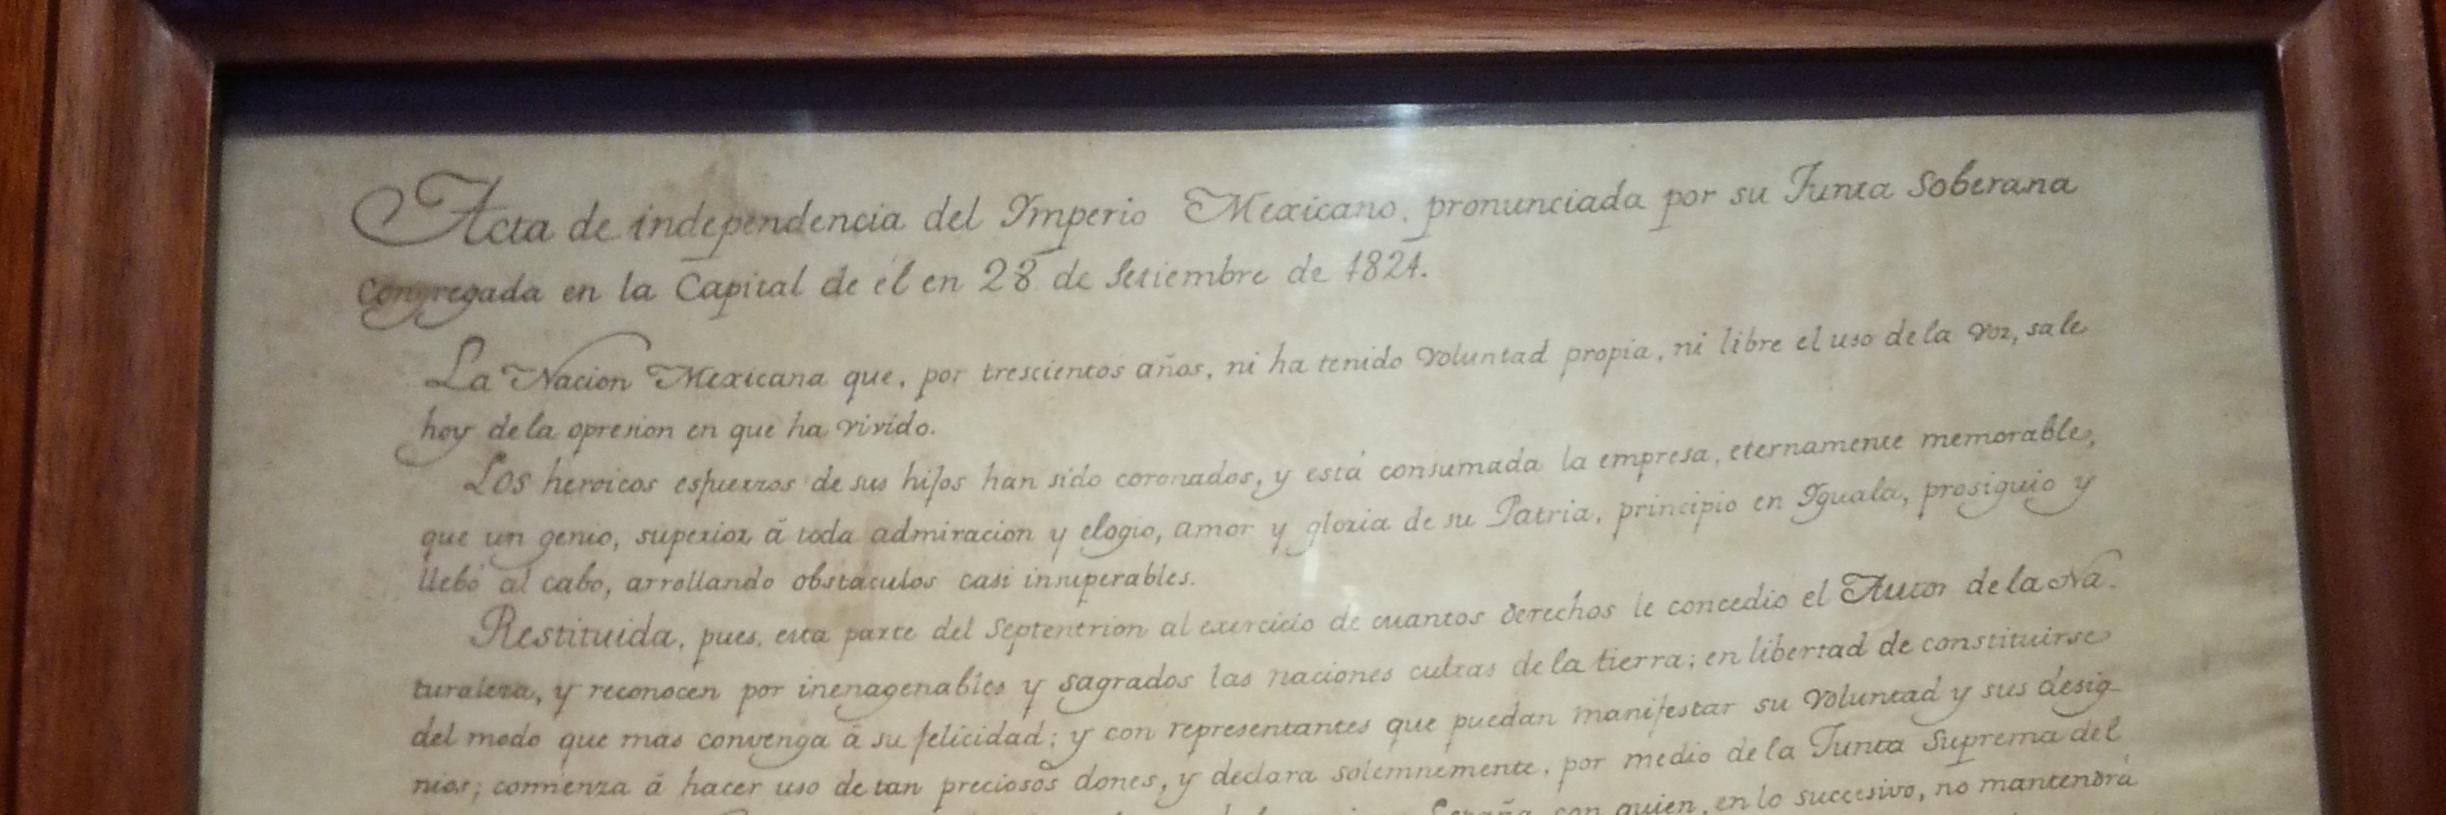 Acta de independencia del Imperio Mexicano, pronunciada por su Junta Soberana
Congregada en la Capital de él en 28 de Setiembre de 1821.
La Nacion Mexicana que, por trescientos años, ni ha tenido voluntad propia, ni libre el uso de la voz, sale
hoy de la opresion en que ha vivido.
Los heroicos esfuerzos de sus hijos han sido coronados, y está consumada la empresa, eternamente memorable,
que un genio, superior á toda admiracion y elogio, amor y gloria de su Patria, principio en Iguala, prosiguio y
llebó al cabo, arrollando obstaculos casi insuperables.
Restituida, pues, esta parte del Septentrion al exercicio de cuantos derechos le concedio el Autor de la Na-
turaleza, y reconocen por inenagenables y sagrados las naciones cultas de la tierra; en libertad de constituirse
del modo que mas convenga á su felicidad; y con representantes que puedan manifestar su voluntad y sus desig-
nios; comienza á hacer uso de tan preciosos dones, y declara solemnemente, por medio de la Junta Suprema del
España con quien, en lo succesivo, no mantendrá